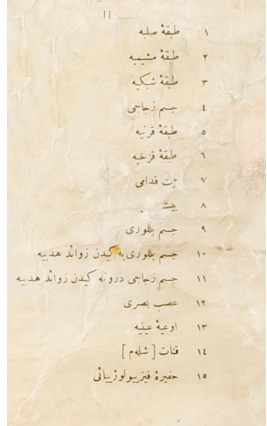 11
١ طبقهٔ صلبه
٢ طبقهٔ مشیمیه
٣ طبقهٔ شبکیه
٤ جسم زجاجی
٥ طبقهٔ قرنیه
٦ طبقهٔ قزحیه
٧ بیت قدامی
٨ بیت
٩ جسم بللوری
١٠ جسم بللوری یه کیدن زوائد هدبیه
١١ جسم زجاجی درونه کیدن زوائد هدبیه
١٢ عصب بصری
١٣ اوعیهٔ عینیه
١٤ قنات [ شلهم ]
١٥ حفیرهٔ فیزیولوژیائی